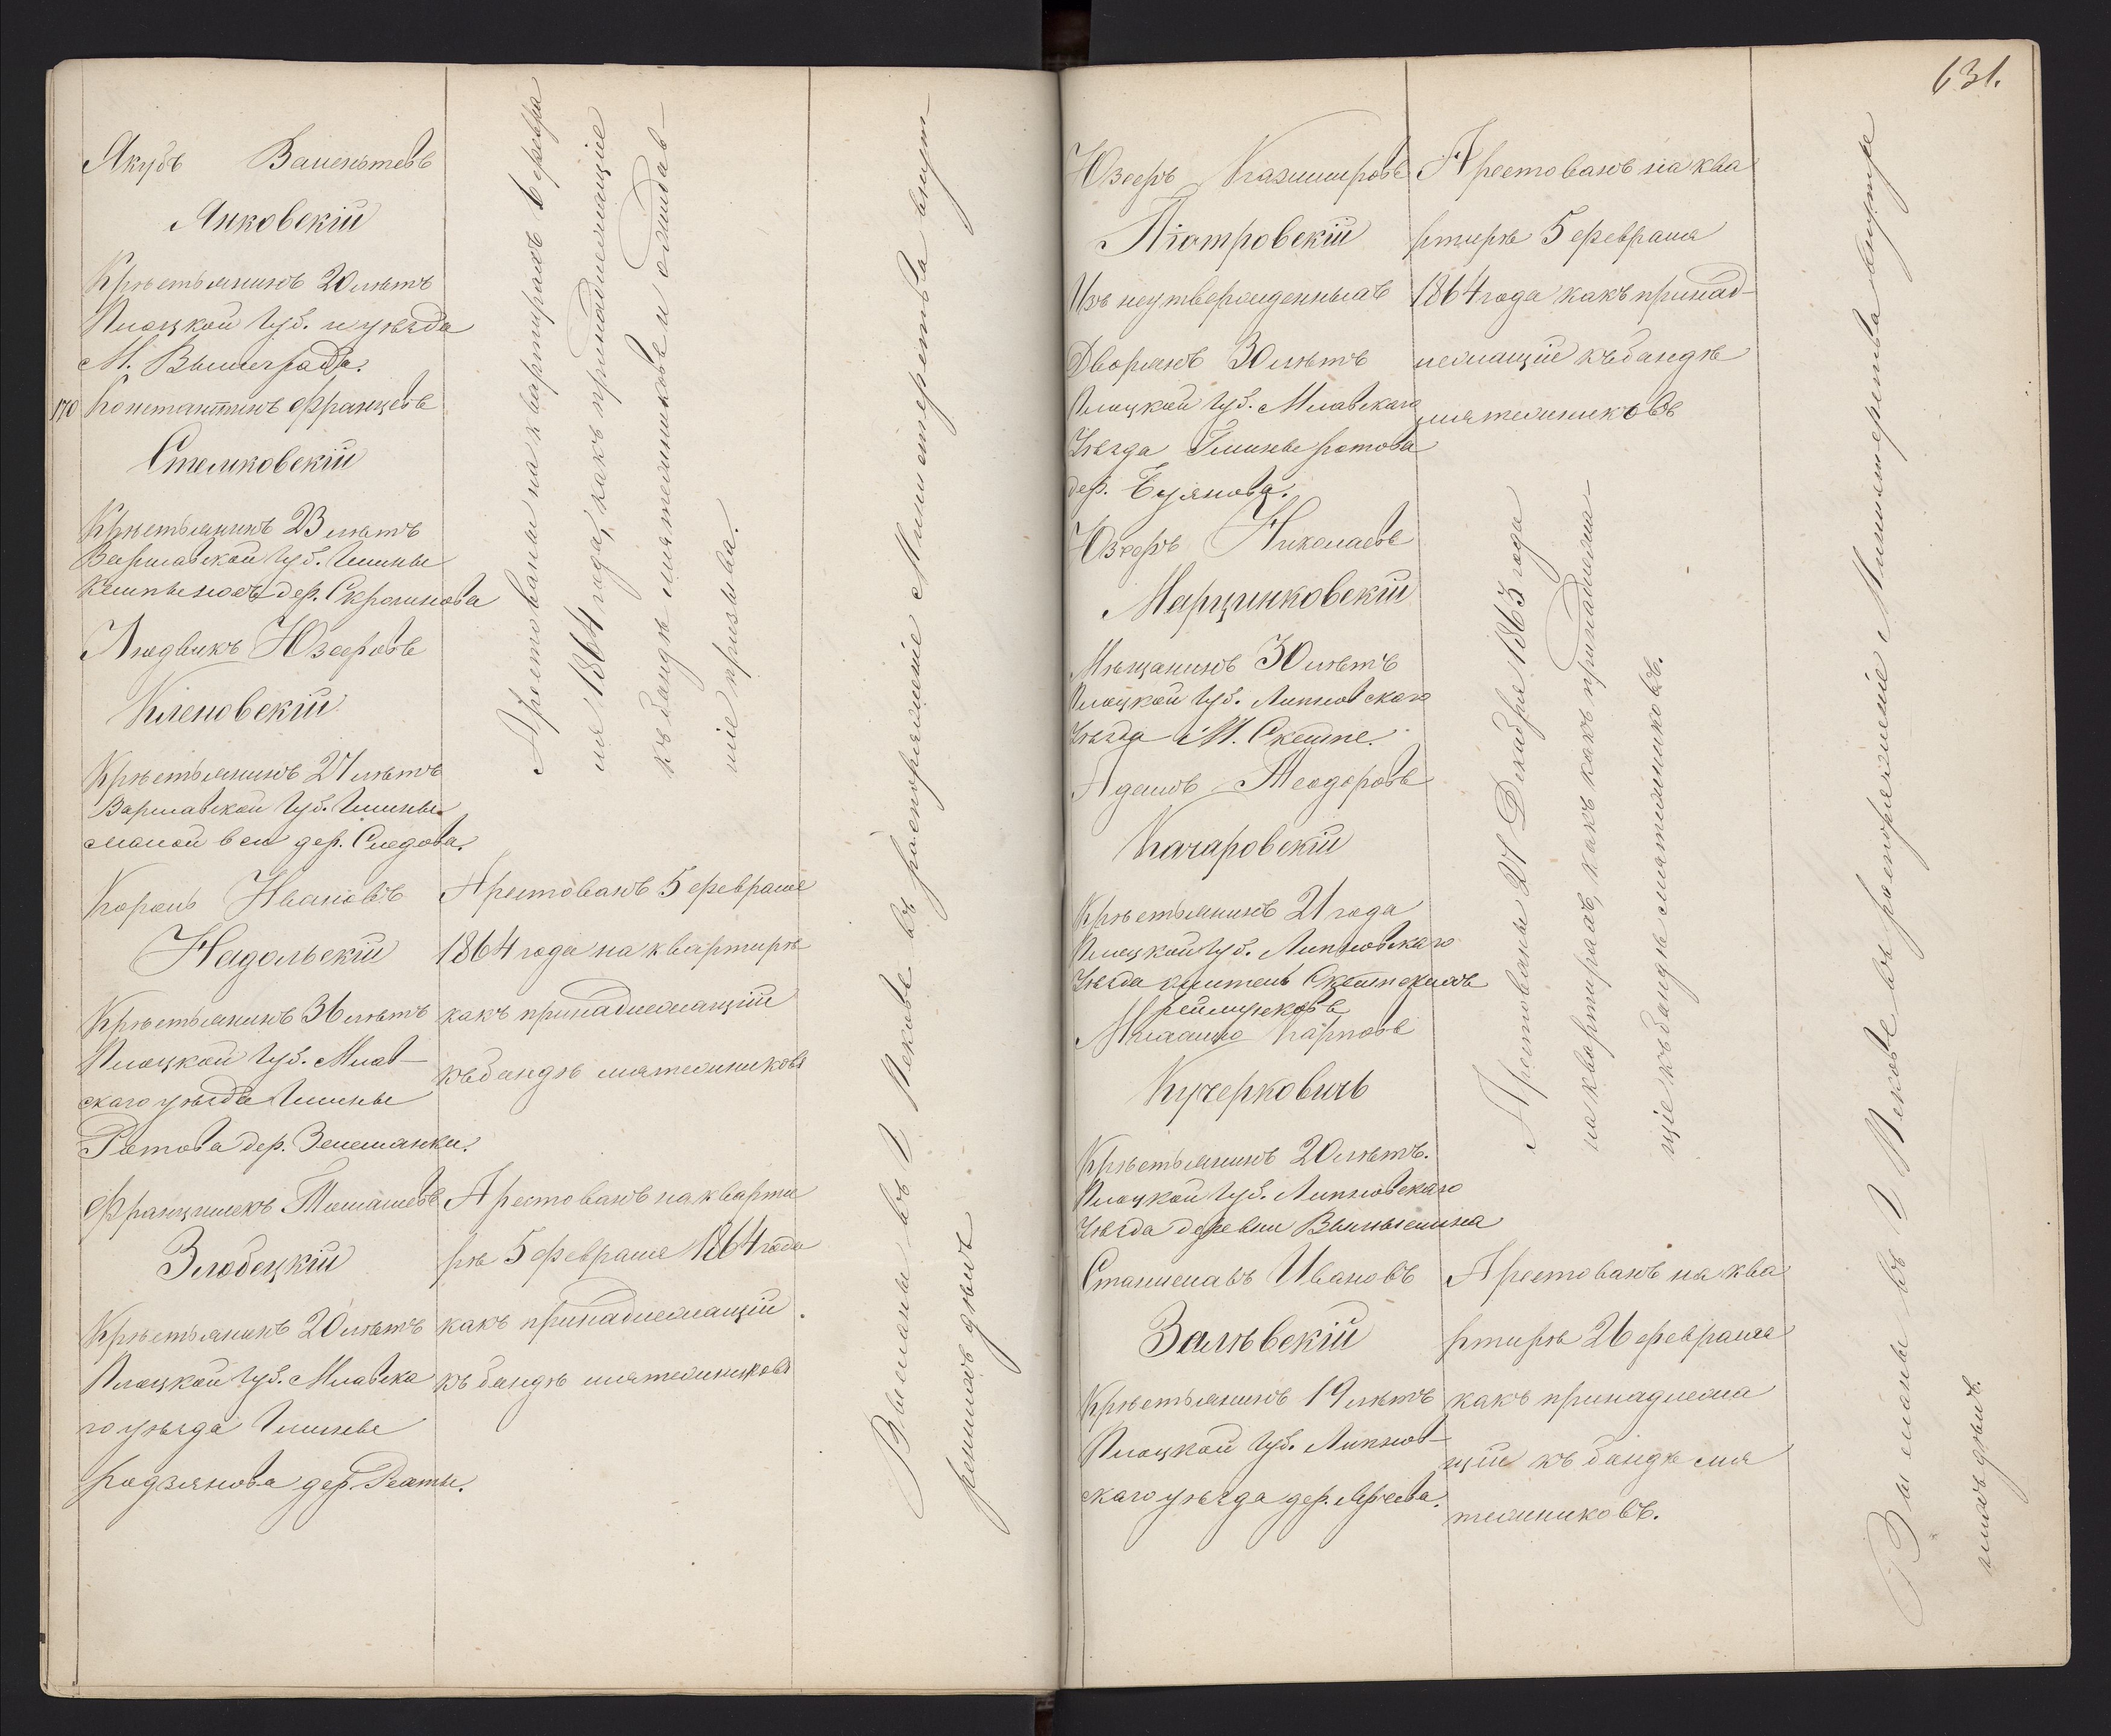 Якубъ Валентовъ
Янковскій
Крѣстьянинъ 20 лѣтъ
Плоцкой Губ. и уѣзда
М. Вышеграда.
170 Константинъ Францовъ
Стемковскій
Крѣстьянинъ 23 лѣтъ
Варшавской Губ. Гмины
дер.
Людвикъ Юзефовъ
Кленовскій
Крѣстьянинъ 27 лѣтъ
Варшавской Губ. Гмины
малой вси дер. Следова.
Арестованы на квартирахъ 6 февра
ля 1864 года, какъ принадлежащіе
къ бандѣ мятежниковъ и ожидав-
шіе призыва.
Король Ивановъ
Надольскій
Крѣстьянинъ 36 лѣтъ
Плоцкой Губ. Млав-
скаго уѣзда Гмины
Ратова дер. Зелешанки.
Арестованъ 5 февраля
1864 года на квартирѣ
какъ принадлежащій
къ бандѣ мятежниковъ
Францишекъ Томашевъ
Злобецкій
Крѣстьянинъ 20 лѣтъ
Плоцкой Губ. Млавска
го уѣзда Гмины
Радзянова дер.
Арестованъ на кварти
рѣ 5 февраля 1864 года
какъ принадлежащій
къ бандѣ мятежниковъ
Высланы въ г Псковъ въ распоряженіе Министерства внут-
реннихъ дѣлъ
631.
Юзефъ Казимировъ
Піотровскій
Изъ неутвержденныхъ
Дворянъ 30 лѣтъ
Плоцкой Губ. Млавскаго
Уѣзда Гмины Ратова
дер. Буянова.
Арестованъ на ква
ртирѣ 5 февраля
1864 года какъ принад-
лежащіе къ бандѣ
мятежниковъ
Юзефъ Николаевъ
Марцинковскій
Мѣщанинъ 30 лѣтъ
Плоцкой Губ. Липновскаго
Уѣзда М. Скемпе.
Адамъ Теодоровъ
Качаровскій
Крѣстьянинъ 21 года
Плоцкой Губ. Липновскаго
Уѣзда житель Скемпскихъ
Карповъ
Кучерковичъ
Крѣстьянинъ 20 лѣтъ.
Плоцкой Губ. Липновскаго
Уѣзда деревни
Арестованы 21 Декабря 1863 года
на квартирахъ, какъ какъ принадлежа-
щіе къ бандѣ мятежниковъ.
Станиславъ Ивановъ
Залѣвскій
Крѣстьянинъ 19 лѣтъ
Плоцкой Губ. Липнов-
скаго уѣзда дер.
Арестованъ на ква
ртирѣ 26 февраля
какъ принадлежа
щій къ бандѣ мя
тежниковъ.
Высланы въ г Псковъ въ распоряженіе Министерства внутре
ннихъ дѣлъ.